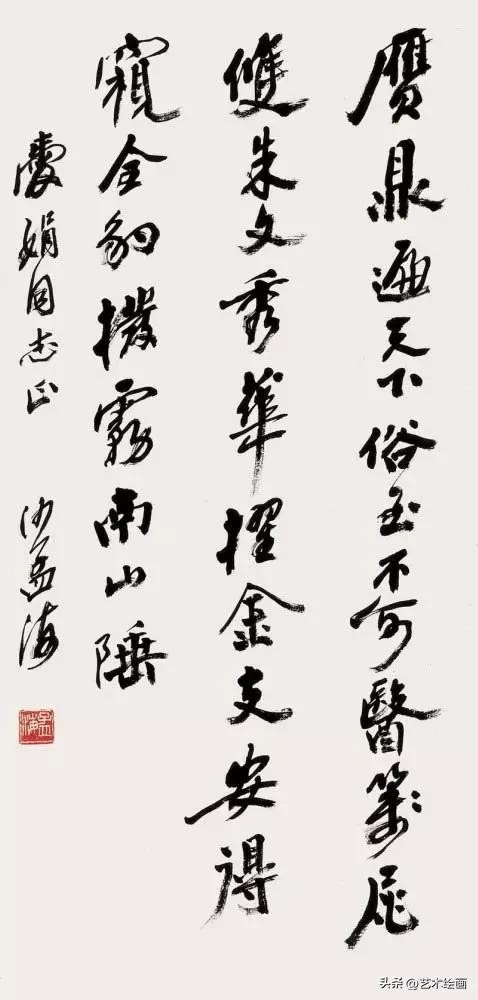 贋鼎遍天下俗至不可醫箋尾
雙朱文秀華擢金支安得
窺全豹撥霧南山陲
慶娟同志正 沙孟海
孟海
头条@艺术绘画